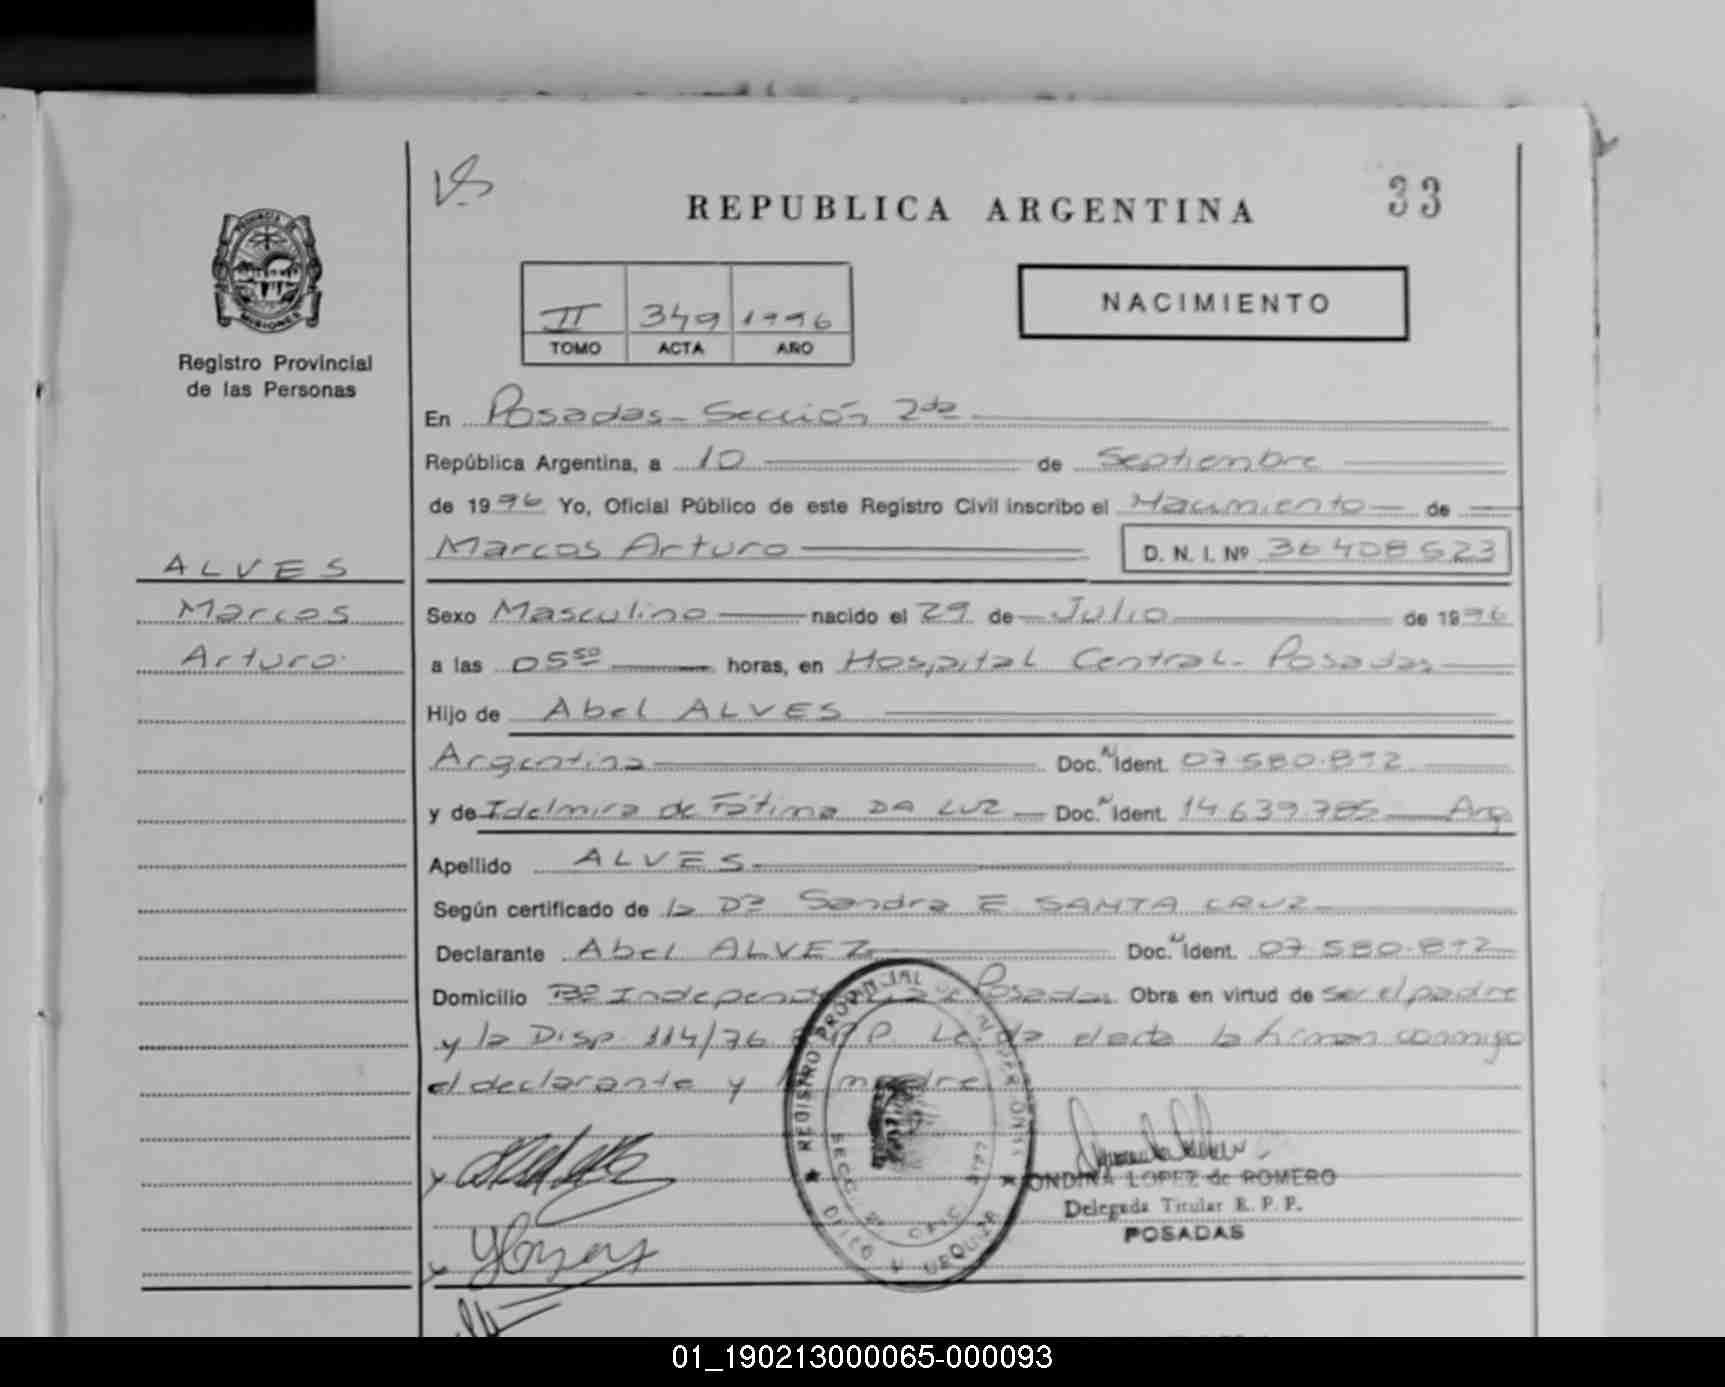 33
REPUBLICA ARGENTINA
NACIMIENTO
II 349 1996
TOMO ACTA AÑO
MISIONES
Registro Provincial
de las Personas
En Posadas - Sección 2da
República Argentina, a 10 de Septiembre
de 1996 Yo, Oficial Público de este Registro Civil inscribo el Nacimiento de
Marcos Arturo D. N. I. Nº 36408523
ALVES
Marcos
Arturo
Sexo Masculino nacido el 29 de Julio de 1996
a las 05 50 horas, en Hospital Central - Posadas
Hijo de Abel ALVES
Argentina Doc. N Ident. 07.580.892
y de Idelmira de Fátima DA LUZ Doc. N Ident. 14.639.785 Arg
Apellido ALVES
Según certificado de la Dra Sandra E SANTA CRUZ
Declarante Abel ALVEZ Doc. N Ident. 07.580.892
Domicilio Bº Independencia - Posadas Obra en virtud de ser el padre
y la Disp. 114/76 Leida el acta la firman conmigo
el declarante y la madre
REGISTRO PROVINCIAL DE LAS PERSONAS
SECC 2ª OFIC
URQUIZA
ONDINA LOPEZ de ROMERO
Delegada Titular R. P. P.
POSADAS
01_190213000065-000093